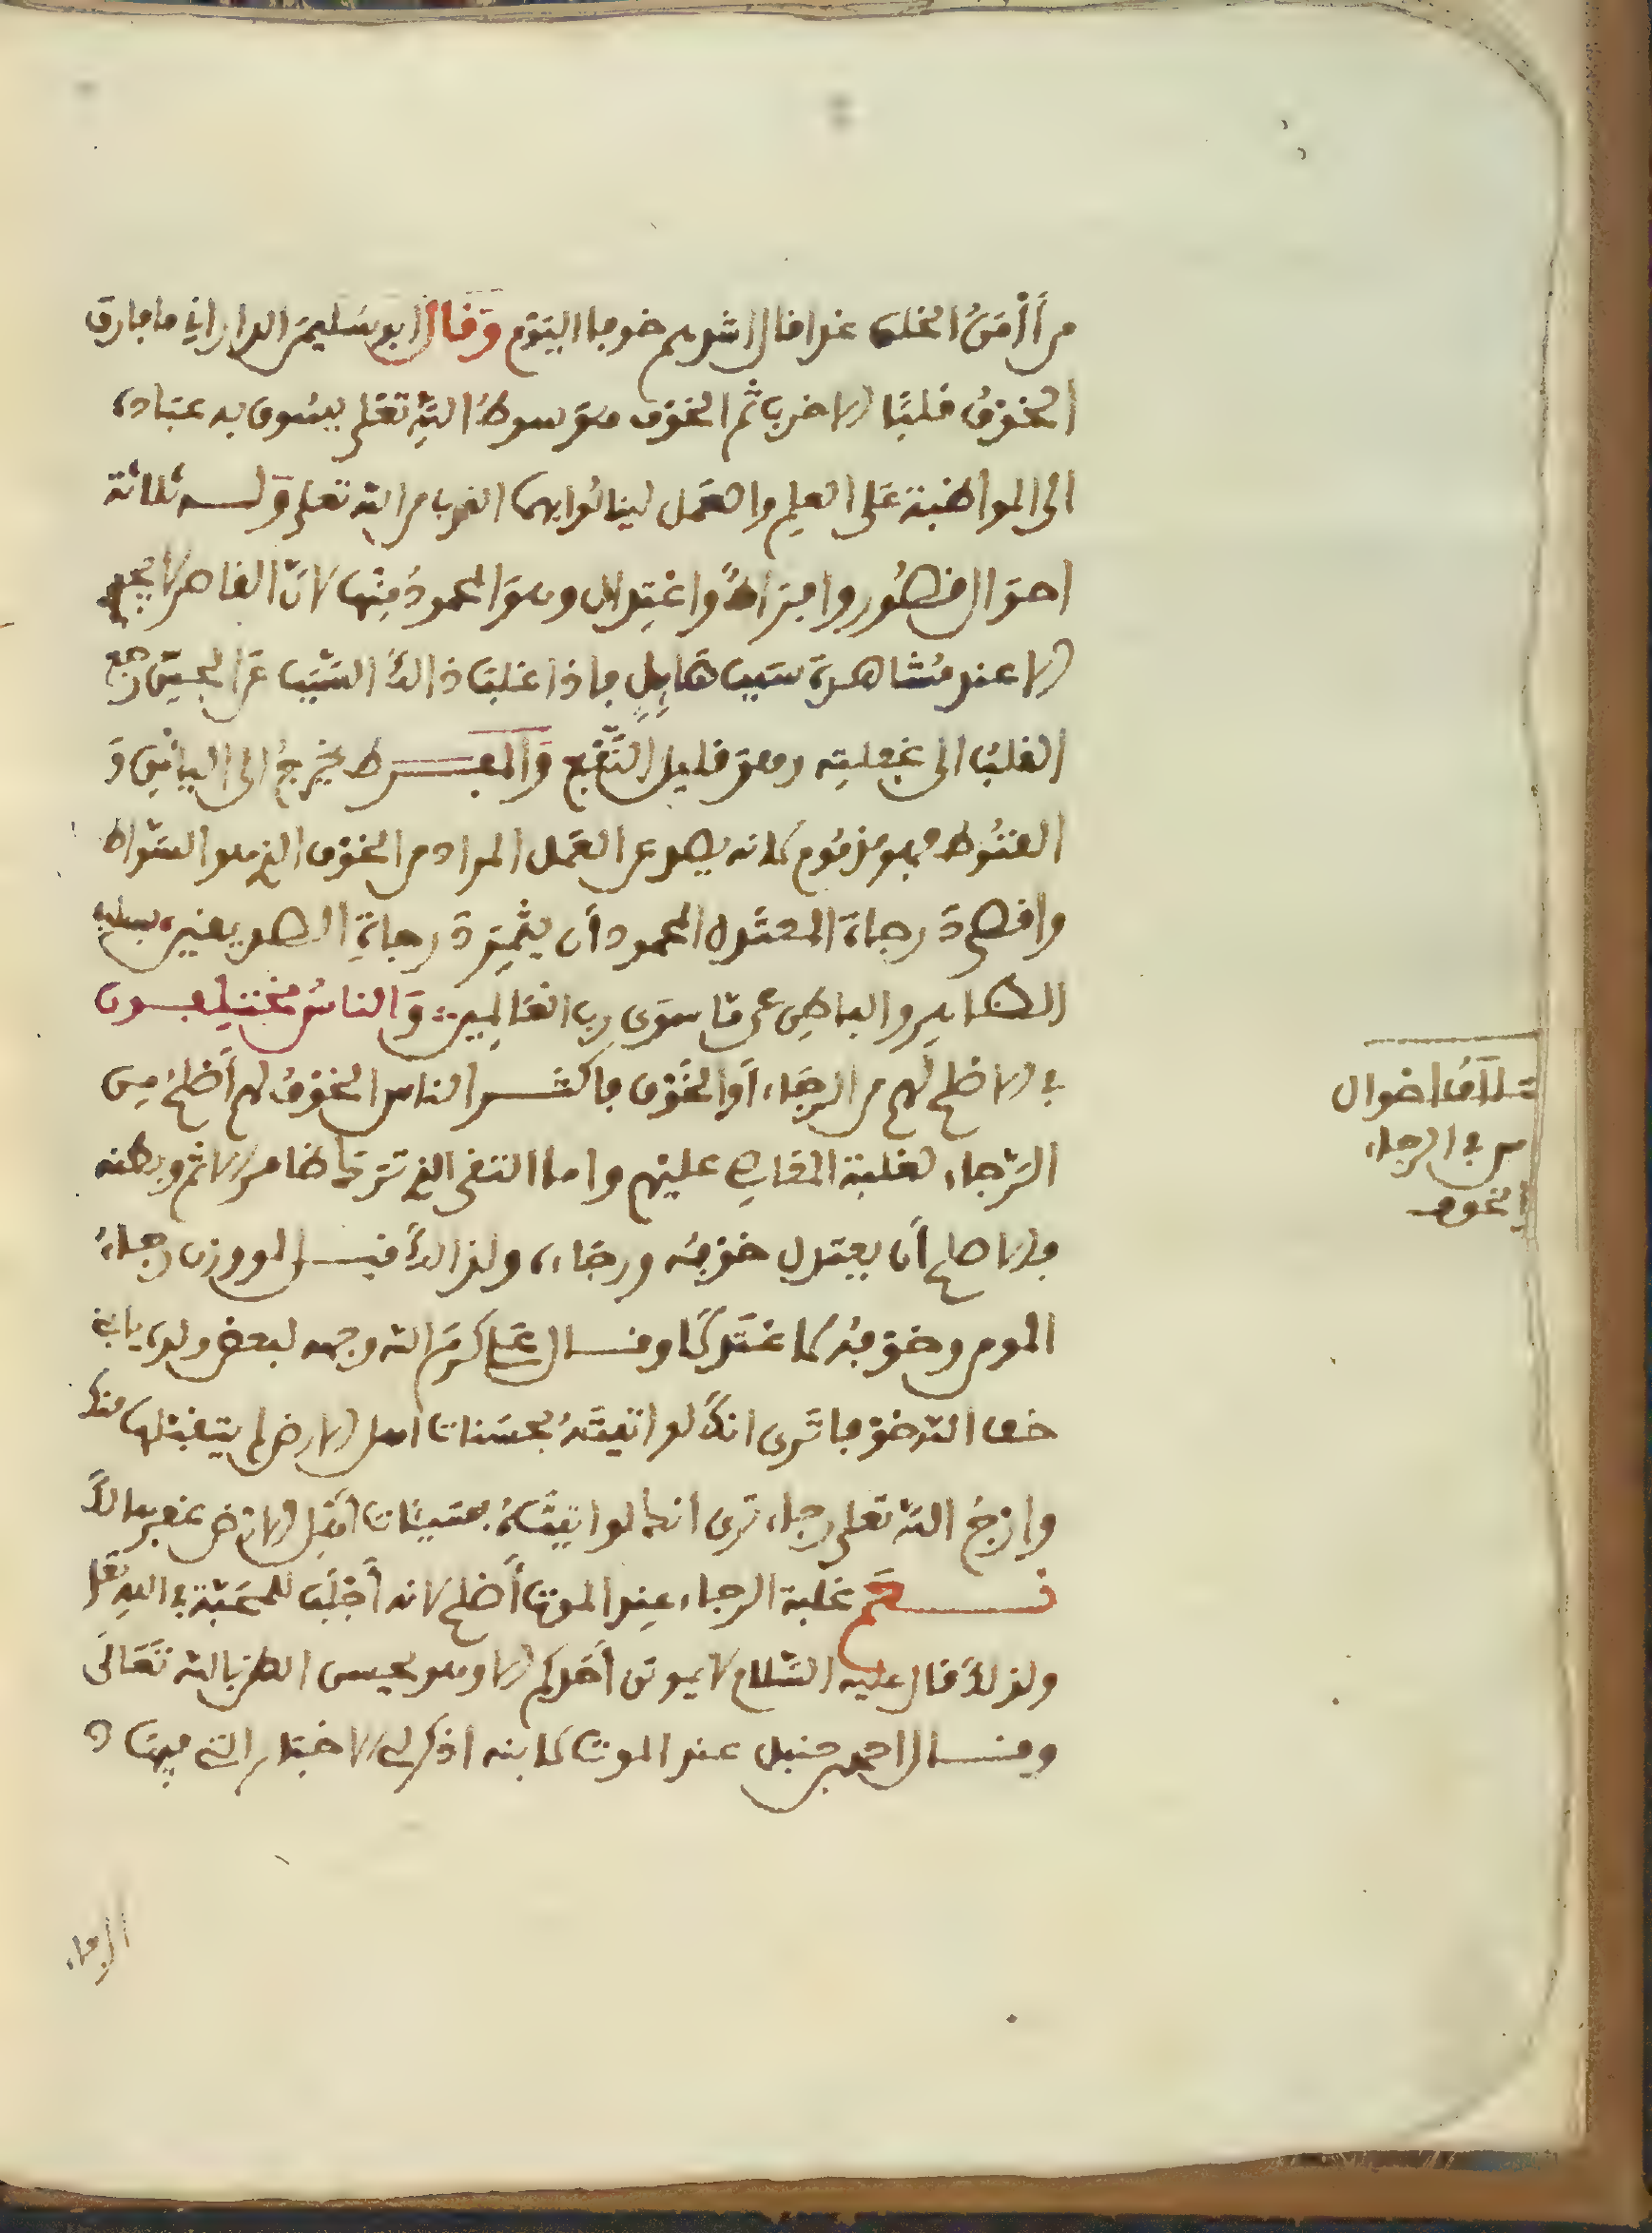 من أَأْمَنُ الخلق غدا قال اشدهم خوفا اليَوْم وَقَال ابو سليمن الداراني ما فارق
الخوفُ قلبًا الا خرب ثم الخوف هو سوط اللهِ تعلى يسُوق به عباده
الى المواظبة عَلى العلم والعَمل لينالُوا بهما القرب من الله تعلى وَلــه ثلاثة
احوال قصُور وافرَاطٌ واعْتِدال وهوَ المحمودُ مِنْها لانّ القاصر لا
الا عند مُشاهدة سَبب هَايِلٍ فاذا غابَ ذالكَ السَّبب عَن الحِسّ رجع
القلبُ الى غفلتِه وهو قليل النَّفْع وَالمفــرط يخرجُ الى اليأسِ وَ
القنُوط فهو مذمُوم لانه يصد عن العَمل المراد من الخوف الذي هو السَّواط
واقصى دَرجاة المعتَدل المحمود أن يثْمِرَ دَرجاةِ الصديقين
الظاهِر والباطِن عن مَا سِوَى رب العَالمِين وَالناسُ مختلِفــون
في الاصلح لهم من الرجَاء أو الخَوْف فاكثــر الناس الخَوْفُ لهم أَصْلحُ مِن
الرَّجاء لغلبة المعَاصِي عليْهم واما التقي الذي تَرَكَ ظاهر الاثم وبطنه
فالاصلح أن يعتدل خَوْفُه ورجَاءه ولذالكَ قيــل لو وزن رجاءُ
المومن وخَوْفُه لاعْتَدلا وقــال عَلي كرمَ الله وجهه لبعض ولده يابني
خف الله خوفا تَرى انكَ لو اتيْتَهُ بحسَنات اهل الارض لم يتقبَّلها منك
وارْجُ اللهَ تعلى رجاء ترى انك لو اتيْتَهُ بسَيئات أهْل الارْض غفرها لكَ
نــعَم غلبة الرجاء عِند الموت أصْلح لانه أَجْلَبُ للمحَبَّة في اللهِ تعلى
ولذلكَ قال عليه السَّلام لا يموتن أحَدكم الا وهو يحسن الظن بالله تَعَالَى
وقــال احمد بن حنبل عند الموت لابنه اذكر لي الاخبَار التي فيهَا
الرجاء
احوال
س في الرجاء
الخوف